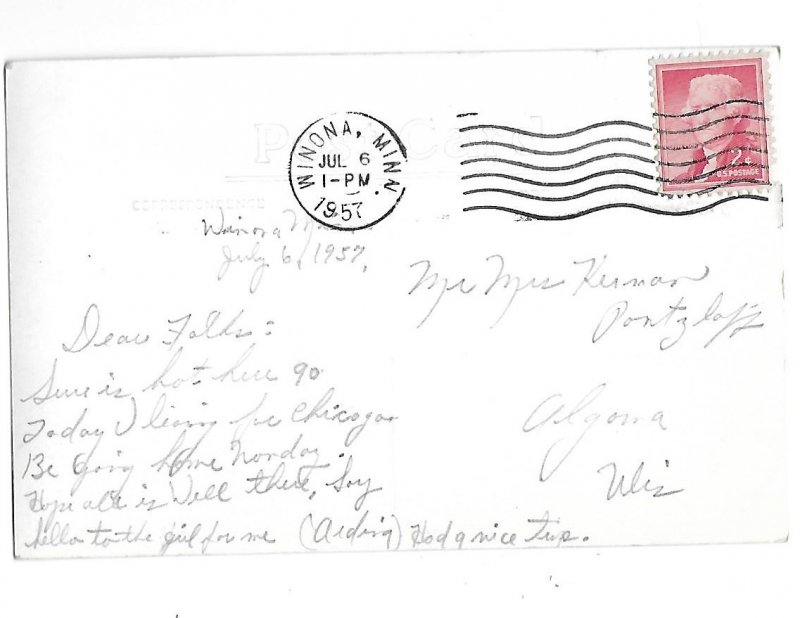 Post Card
WINONA, MINN.
JUL 6
1-PM
1957
2¢
U.S. POSTAGE
CORRESPONDENCE
Winona Minn
July 6, 1957,
Mr Mrs
Algoma
Wis
Dear Folks:
Sure is hot here 90
Today I for Chicago
Be Going home Monday.
Hope all is Well there, Say
hello to the girl for me Had a nice trip.